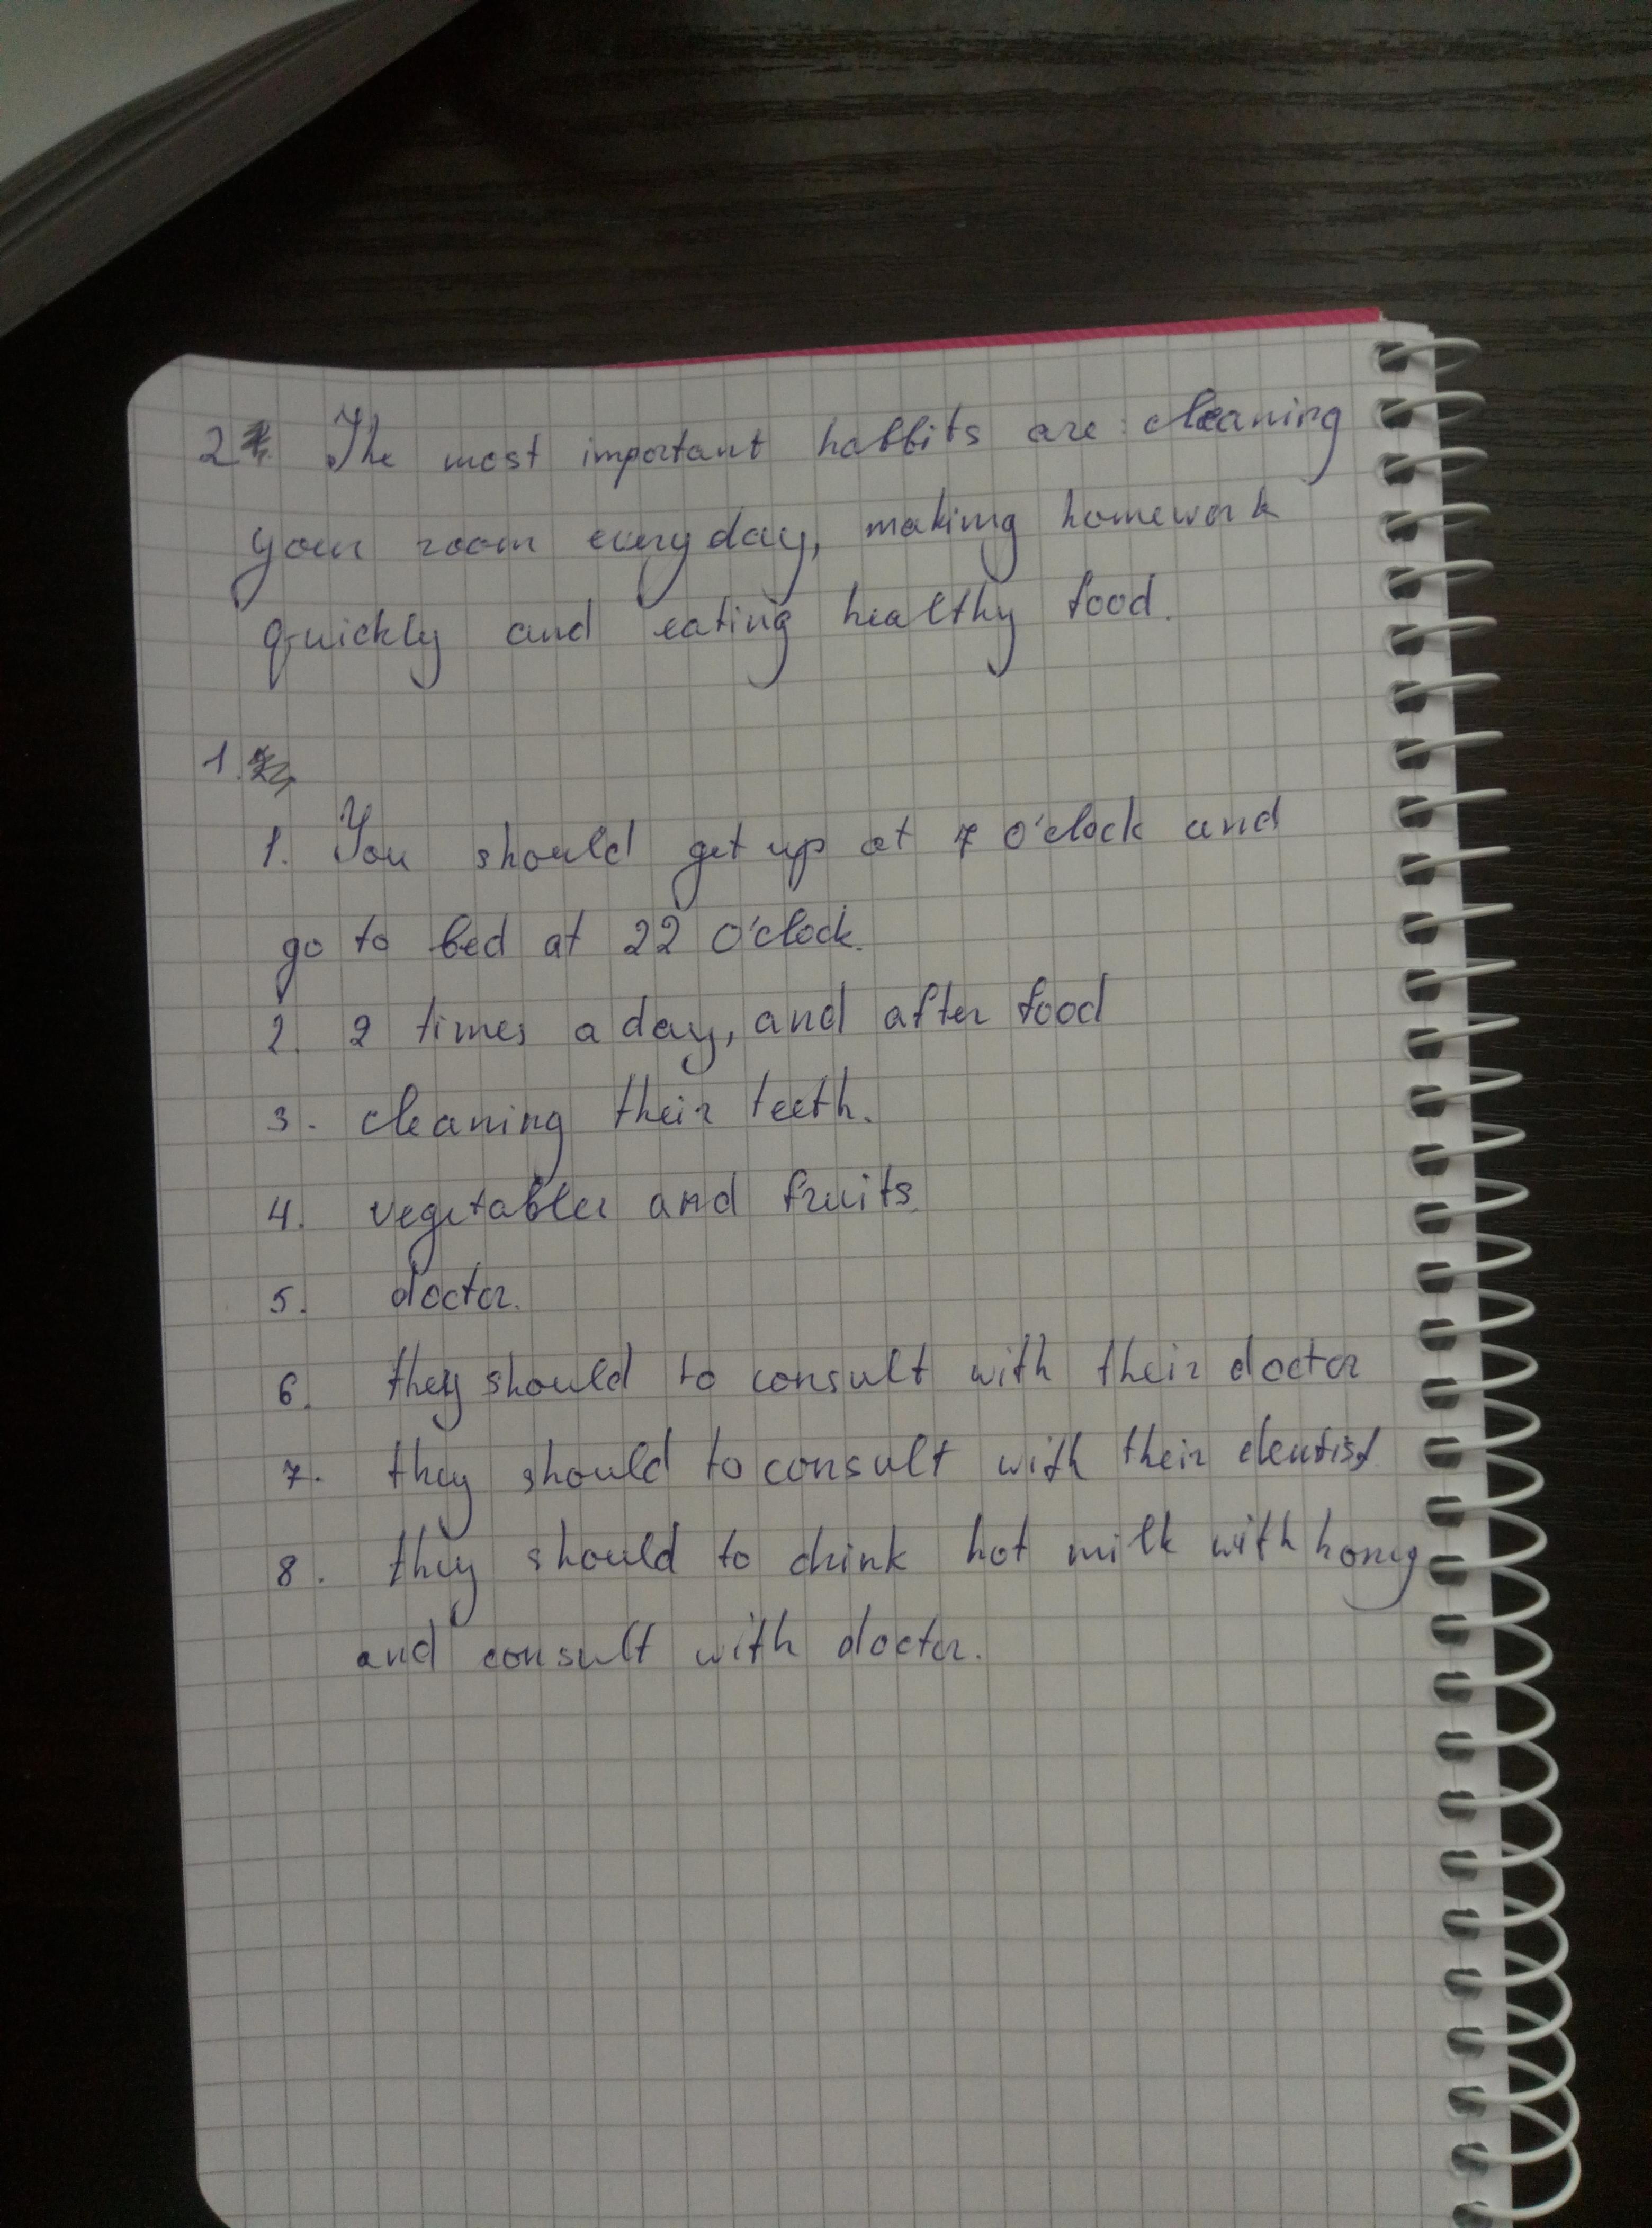 2. The most important habbits are: cleaning
your room every day, making homework
quickly and eating healthy food.
1.
1. You should get up at 7 o'clock and
go to bed at 22 o'clock.
2. 2 times a day, and after food
3. cleaning their teeth.
4. vegetables and fruits.
5. doctor.
6. they should to consult with their doctor
7. they should to consult with their dentist
8. they should to drink hot milk with honey
and consult with doctor.